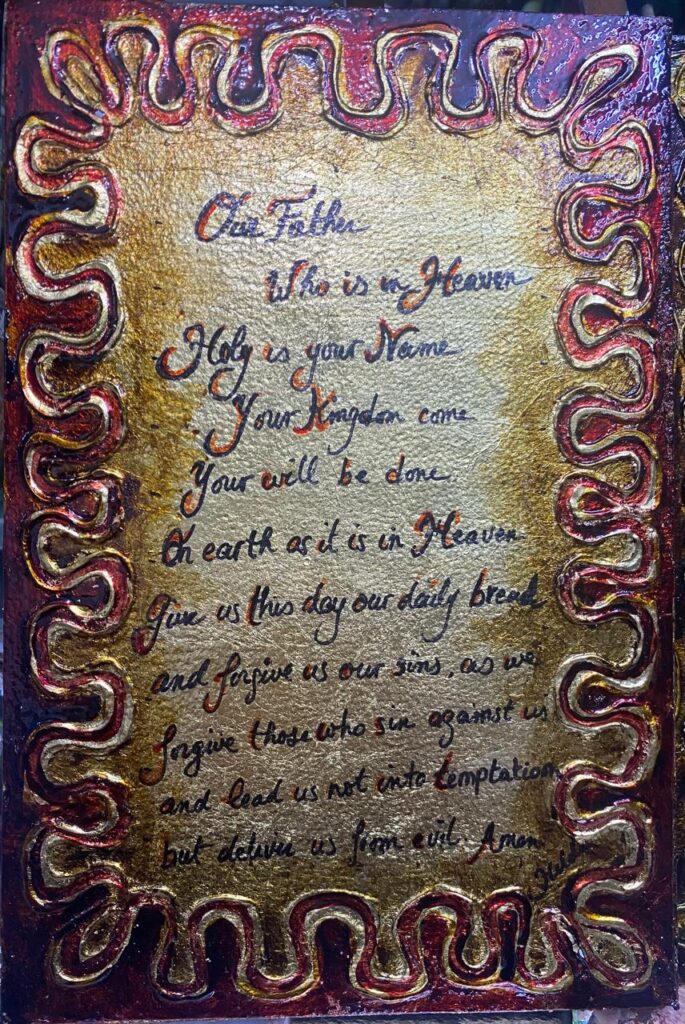 Our Father
Who is in Heaven
Holy is your Name
Your Kingdom come
Your will be done
On earth as it is in Heaven
Give us this day our daily bread
and forgive us our sins, as we
forgive those who sin against us
and lead us not into temptation
but deliver us from evil. Amen.